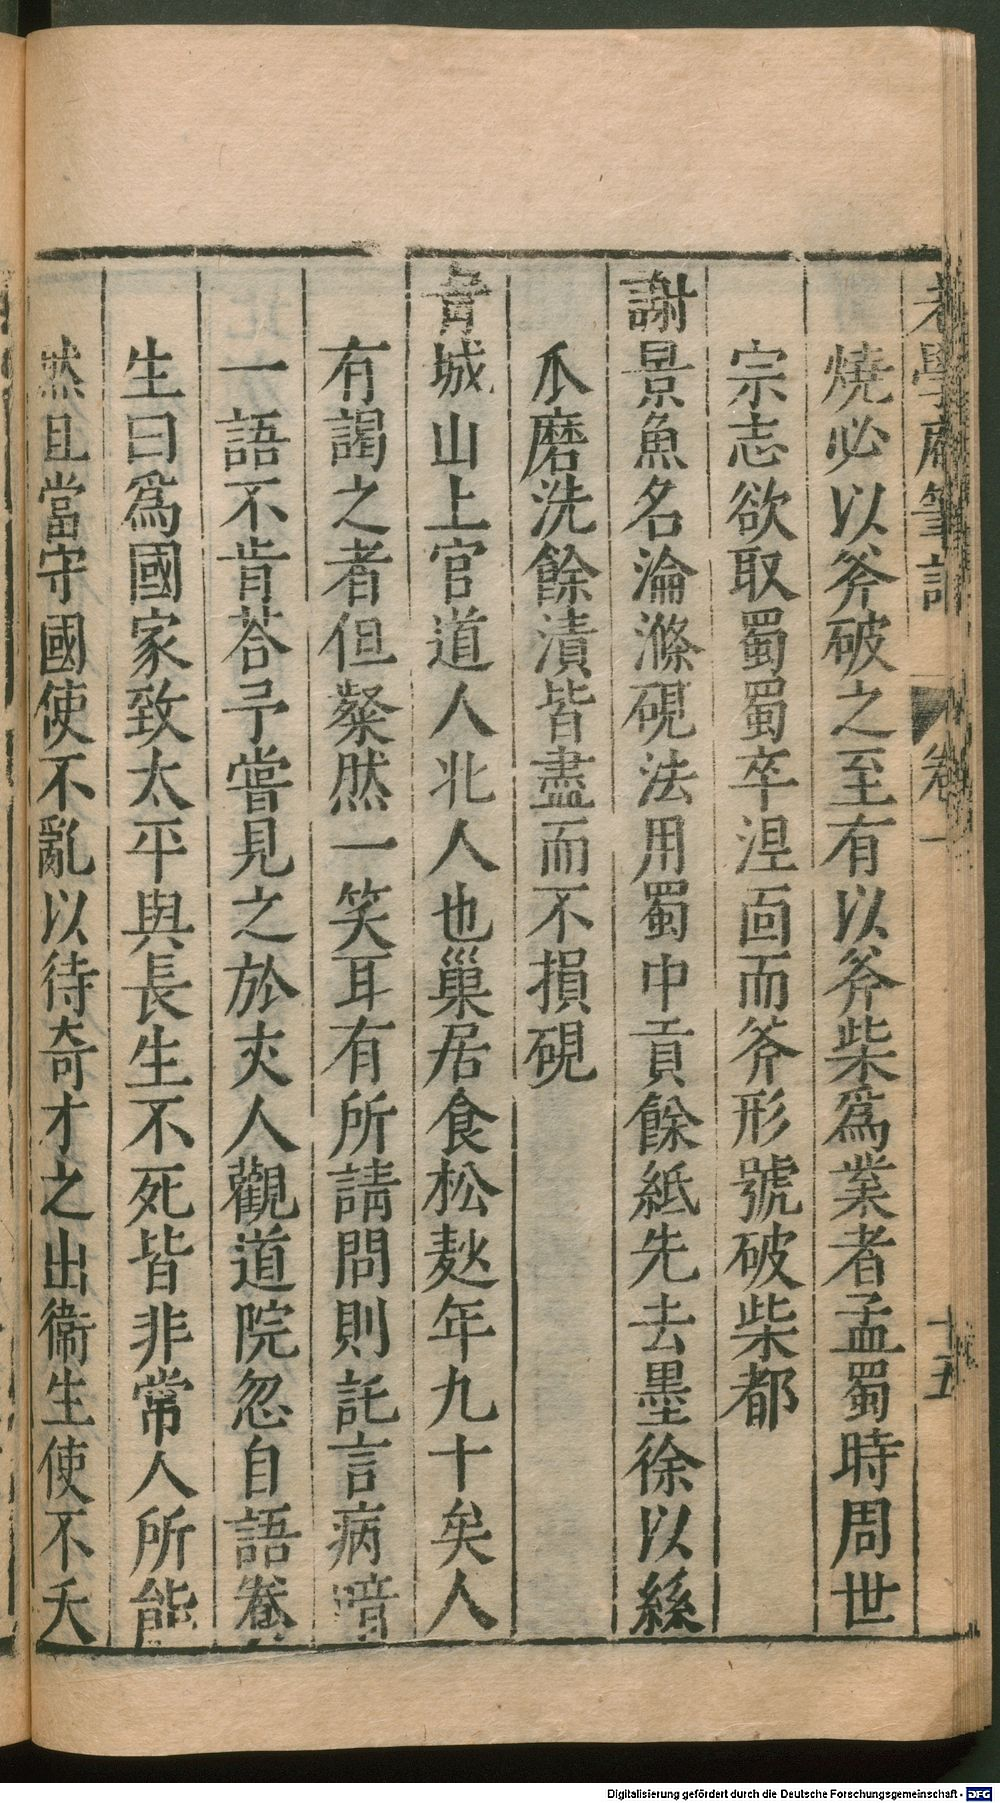 老學庵筆記 卷一 十五
燒必以斧破之至有以斧柴爲業者孟蜀時周世
宗志欲取蜀蜀卒涅面而斧形號破柴都
謝景魚名淪滌硯法用蜀中貢餘紙先去墨徐以絲
瓜磨洗餘漬皆盡而不損硯
青城山上官道人北人也巢居食松麨年九十矣人
有謁之者但粲然一笑耳有所請問則託言病喑
一語不肯荅予嘗見之於丈人觀道院忽自語養
生曰爲國家致太平與長生不死皆非常人所能
然且當守國使不亂以待奇才之出衞生使不夭
Digitalisierung gefördert durch die Deutsche Forschungsgemeinschaft - DFG